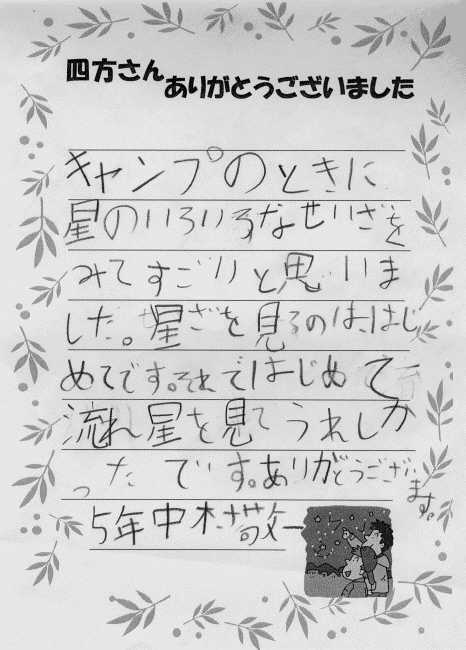 四方さん
ありがとうございました
キャンプのときに
星のいろいろなせいざを
みてすごいと思いま
した。星ざを見るのは、はじ
めてです。それではじめて
流れ星を見てうれしか
ったです。ありがとうござい
ます。
5年中木敬一